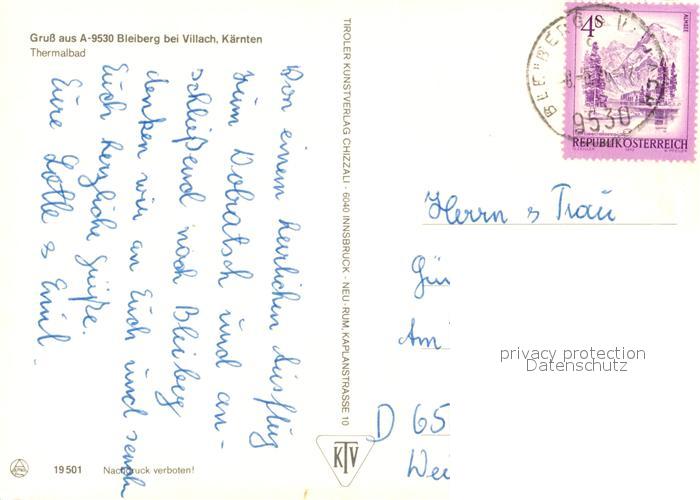 Gruß aus A-9530 Bleiberg bei Villach, Kärnten
Thermalbad
Von einem herrlichen Ausflug
zum Dobratsch und an-
schließend nach Bleiberg
denken wir an Euch und senden
Euch herzliche Grüße.
Eure Lotte & Emil.
19501 Nachdruck verboten!
TIROLER KUNSTVERLAG CHIZZALI · 6040 INNSBRUCK · NEU-RUM, KAPLANSTRASSE 10
KTV
4S
ALMSEE
REPUBLIK ÖSTERREICH
9530
Herrn & Frau
Gün
Am
D 65
Wei
privacy protection
Datenschutz